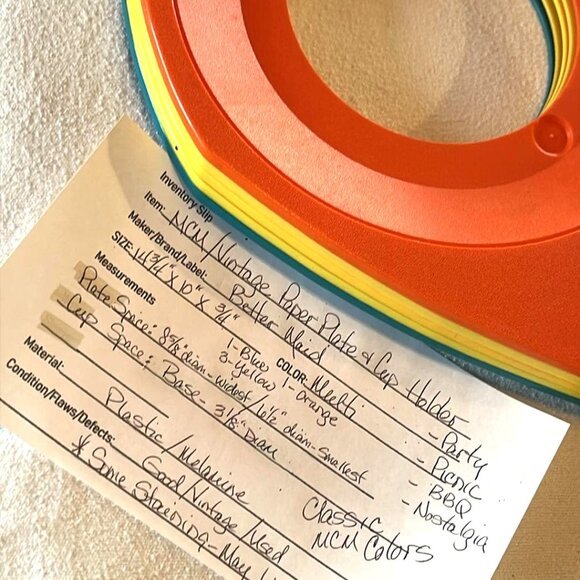 Inventory Slip
Item: MCM/Vintage Paper Plate & Cup Holder
Maker/Brand/Label: Better Maid
SIZE: 14 3/4" x 10" x 3/4"
COLOR: Multi
1-Blue 1-Orange
3-Yellow
Measurements
Plate Space: 8 5/8" diam-widest/6 1/2" diam-smallest
Cup Space: Base- 3 1/8" Diam
- Party
- Picnic
- BBQ
- Nostalgia
Material: Plastic/Melamine
Classic
MCM Colors
Condition/Flaws/Defects: Good/Vintage/Used
* Some Staining-May